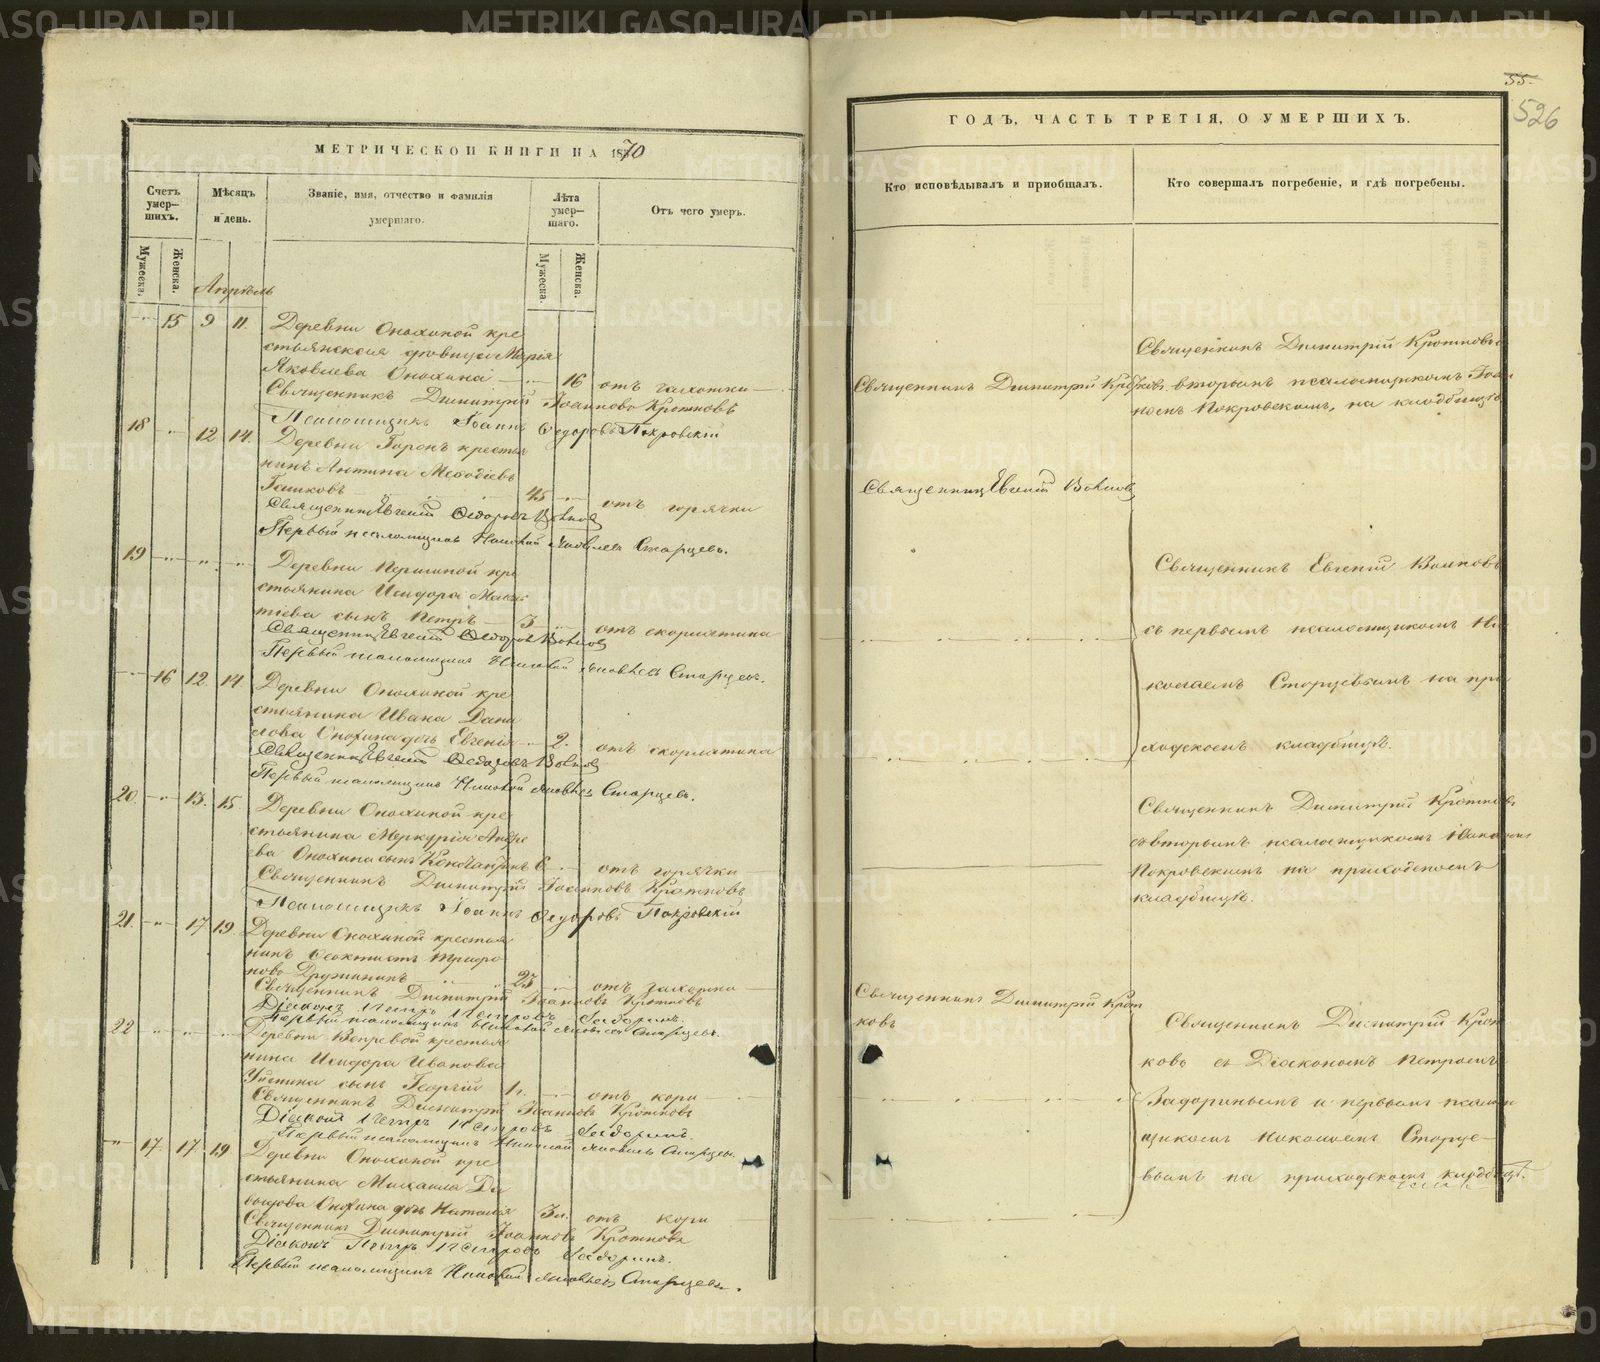 МЕТРИЧЕСКОЙ КНИГИ НА 1870
Счетъ умер-
шихъ.
Мѣсяцъ
и день.
Званіе, имя, отчество и фамилія
умершаго.
Лѣта
умер-
шаго.
Отъ чего умеръ.
Мужеска.
Женска.
Мужеска.
Женска.
Апрѣль
15 9 11. Деревни Онохиной кре
стьянская дѣвица Марія
Яковлева Онохина 16 отъ чахотки
Священникъ Димитрій Іоанновъ Кротковъ
Псаломщикъ Іоаннъ Ѳедоровъ Покровскій
18 12 14. Деревни
нинъ
45 отъ горячки
Священникъ Евгеній Ѳедоровъ Волковъ
Первый псаломщикъ Николай Яковлевъ Старцевъ.
19 Деревни Першиной кре
стьянина Исидора
сынъ Петръ 3 отъ скорлатина
Священникъ Евгеній Ѳедоровъ Волковъ
Первый псаломщикъ Николай Яковлевъ Старцевъ.
16 12 14 Деревни Онохиной кре
стьянина Ивана Дани
лова Онохина дочь Евгенія 2. отъ скорлатина
Священникъ Евгеній Ѳедоровъ Волковъ
Первый псаломщикъ Николай Яковлевъ Старцевъ.
20. 13. 15. Деревни Онохиной кре
стьянина Меркурія Андре
ева Онохина сынъ Константинъ 6 отъ горячки
Священникъ Димитрій Іоанновъ Кротковъ
Псаломщикъ Іоаннъ Ѳедоровъ Покровскій
21. 17 19. Деревни Онохиной крестья
нинъ Ѳеоктистъ Трифо
новъ Дружининъ 23 отъ
Священникъ Димитрій Іоанновъ Кротковъ
Діаконъ Петръ Петровъ Задоринъ.
Первый псаломщикъ Николай Яковлевъ Старцевъ.
22 Деревни крестья
нина Исидора Иванова
сынъ Георгій отъ кори
Священникъ Димитрій Іоанновъ Кротковъ
Діаконъ Петръ Петровъ Задоринъ.
Первый псаломщикъ Николай Яковлевъ Старцевъ.
17. 17 19 Деревни Онохиной кре
стьянина Михаила Да
выдова Онохина дочь Наталія отъ кори
Священникъ Димитрій Іоанновъ Кротковъ
Діаконъ Петръ Петровъ Задоринъ.
Первый псаломщикъ Николай Яковлевъ Старцевъ.
55.
526
ГОДЪ, ЧАСТЬ ТРЕТІЯ, О УМЕРШИХЪ.
Кто исповѣдывалъ и пріобщалъ.
Кто совершалъ погребеніе, и гдѣ погребены.
Священникъ Димитрій Кротковъ
Священникъ Димитрій Кротковъ съ
вторымъ псаломщикомъ Іоан
номъ Покровскимъ, на кладбищѣ
Священникъ Евгеній Волковъ
Священникъ Евгеній Волковъ
съ первымъ псаломщикомъ Ни
колаемъ Старцевымъ на при
ходскомъ кладбищѣ.
Священникъ Димитрій Кротковъ
съ вторымъ псаломщикомъ Іоанномъ
Покровскимъ на приходскомъ
кладбищѣ.
Священникъ Димитрій Крот
ковъ
Священникъ Димитрій Крот
ковъ съ Діакономъ Петромъ
Задоринымъ и первымъ псалом
щикомъ Николаемъ Старце-
вымъ на приходскомъ кладбищѣ.
METRIKI.GASO-URAL.RU